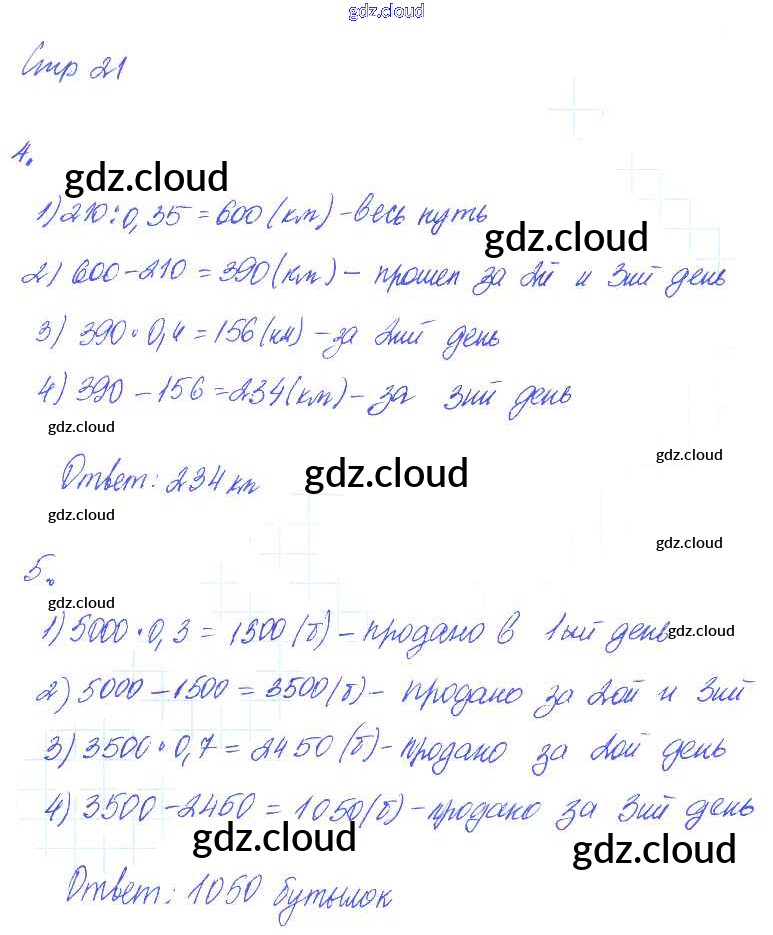 gdz.cloud
Стр 21
4.
gdz.cloud
1) 210 : 0,35 = 600 (км) - весь путь
gdz.cloud
2) 600 - 210 = 390 (км) - прошел за 2й и 3ий день
3) 390 • 0,4 = 156 (км) - за 2ий день
4) 390 - 156 = 234 (км) - за 3ий день
gdz.cloud
gdz.cloud
Ответ: 234 км
gdz.cloud
gdz.cloud
gdz.cloud
5.
gdz.cloud
1) 5000 • 0,3 = 1500 (б) - продано в 1ый день
gdz.cloud
2) 5000 - 1500 = 3500 (б) - продано за 2ой и 3ий
3) 3500 • 0,7 = 2450 (б) - продано за 2ой день
4) 3500 - 2450 = 1050 (б) - продано за 3ий день
gdz.cloud
gdz.cloud
Ответ: 1050 бутылок